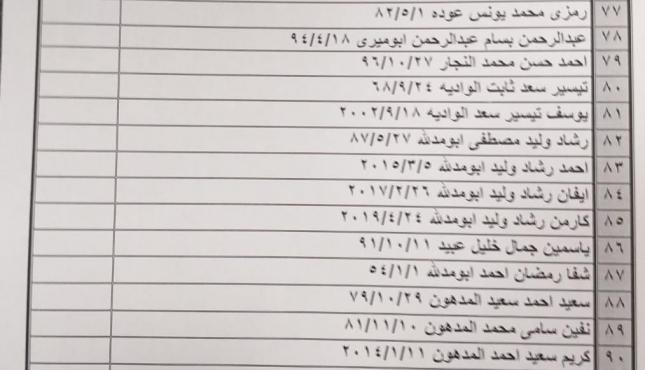 ٧٧ رمزى محمد يونس عوده ٨٢/٥/١
٧٨ عبدالرحمن بسام عبدالرحمن ابوميرى ٩٤/٤/١٨
٧٩ احمد حسن محمد النجار ٩٦/١٠/٢٧
٨٠ تيسير سعد ثابت الواديه ٦٨/٩/٢٤
٨١ يوسف تيسير سعد الواديه ٢٠٠٢/٩/١٨
٨٢ رشاد وليد مصطفى ابومدلله ٨٧/٥/٢٧
٨٣ احمد رشاد وليد ابومدلله ٢٠١٥/٣/٥
٨٤ ايفان رشاد وليد ابومدلله ٢٠١٧/٢/٢٦
٨٥ كارمن رشاد وليد ابومدلله ٢٠١٩/٤/٢٤
٨٦ ياسمين جمال خليل عبيد ٩١/١٠/١١
٨٧ شفا رمضان احمد ابومدلله ٥٤/١/١
٨٨ سعيد احمد سعيد المدهون ٧٩/١٠/٢٩
٨٩ نفين سامى محمد المدهون ٨١/١١/١٠
٩٠ كريم سعيد احمد المدهون ٢٠١٤/١/١١